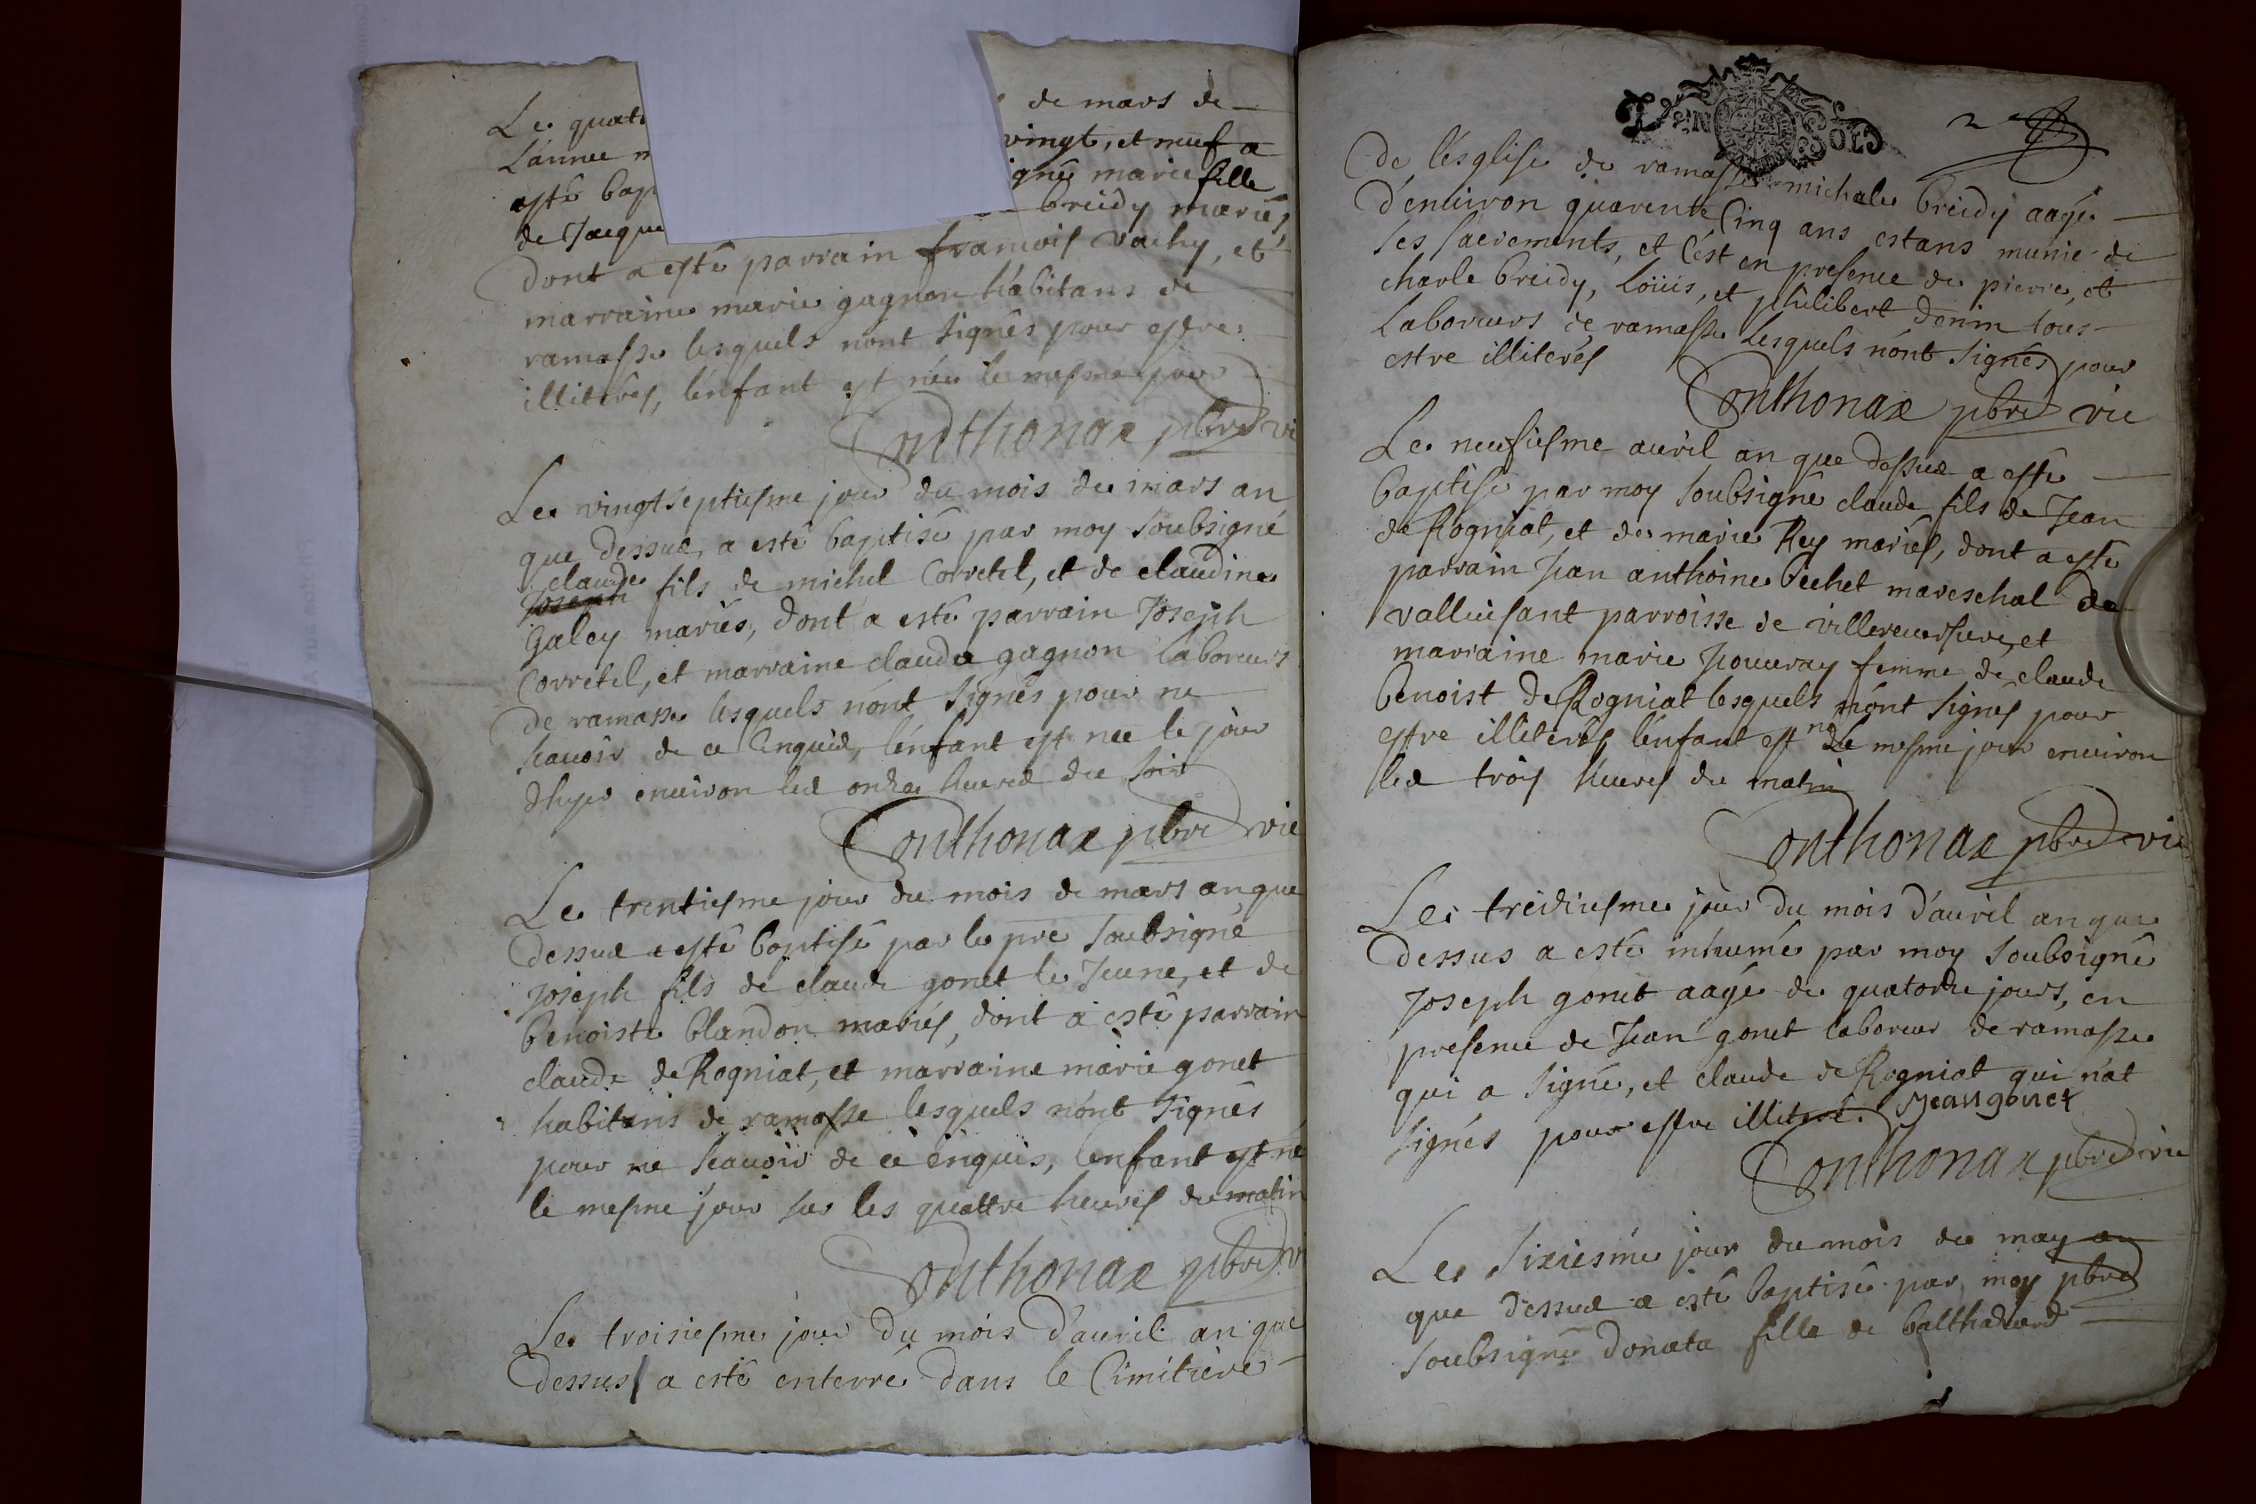 Le quat de mars de
L'annee m vingt, et neuf a
esté bap igné marie fille
de Jacque breidy mariés
dont a esté parrain francois vachy, et
marraine marie gagnon habitans de
ramasse lesquels n'ont signés pour estre
illiterés, l'enfant est née le mesme jour
Conthonax pbre vi
Le vingtseptiesme jour du mois de mars an
que dessus, a esté baptisé par moy soubsigné
claude
Joseph fils de michel Corretel, et de claudine
Galey mariés, dont a esté parrain Joseph
Corretel, et marraine clauda gagnon laboreurs
de ramasse lesquels n'ont signés pour ne
scavoir de ce enquis, l'enfant est nee le jour
d'hyer environ les onze heures du soir
Conthonax pbre vic
Le trentiesme jour du mois de mars an que
dessus a esté baptisé par le pre soubsigné
Joseph fils de claude gonet le Jeune, et de
benoiste blandon mariés, dont a esté parrain
claude de Rogniat, et marraine marie gonet
habitans de ramasse lesquels n'ont signés
pour ne scavoir de ce enquis, l'enfant est né
le mesme jour sur les quattre heures du matin
Conthonax pbre vi
Le troisiesme jour du mois d'avril an que
dessus a esté enterré dans le Cimitiere
DEN SOLS
2e
de l'esglise de ramasse michale breidy aagée
d'environ quarente Cinq ans estans munie de
ses sacrements, et c'est en presence de pierre, et
charle breidy, Loüis, et philibert donin tous
laboreurs de ramasse lesquels n'ont signés pour
estre illiterés
Conthonax pbre vic
Le neufiesme avril an que dessus a esté
baptisé par moy soubsigné claude fils de Jean
de Rogniat, et de marie Rey mariés, dont a esté
parrain Jean anthoine bechet mareschal de
valleisant parroisse de villereversure, et
marraine marie Jouvray femme de claude
benoist de Rogniat lesquels n'ont signés pour
estre illiterés l'enfant est né le mesme jour environ
les trois heures du matin
Conthonax pbre vic
Le treiziesme jour du mois d'avril an que
dessus a esté inhumé par moy soubsigné
Joseph gonet aagé de quatorze jours, en
presence de Jean gonet laboreur de ramasse
qui a signé, et claude de Rogniat qui n'at
signés pour estre illiteré. Jean gonet
Conthonax pbre vic
Le sixiesme jour du mois de may an
que dessus a esté baptisé par moy pbre
soubsigné donata fille de balthazard